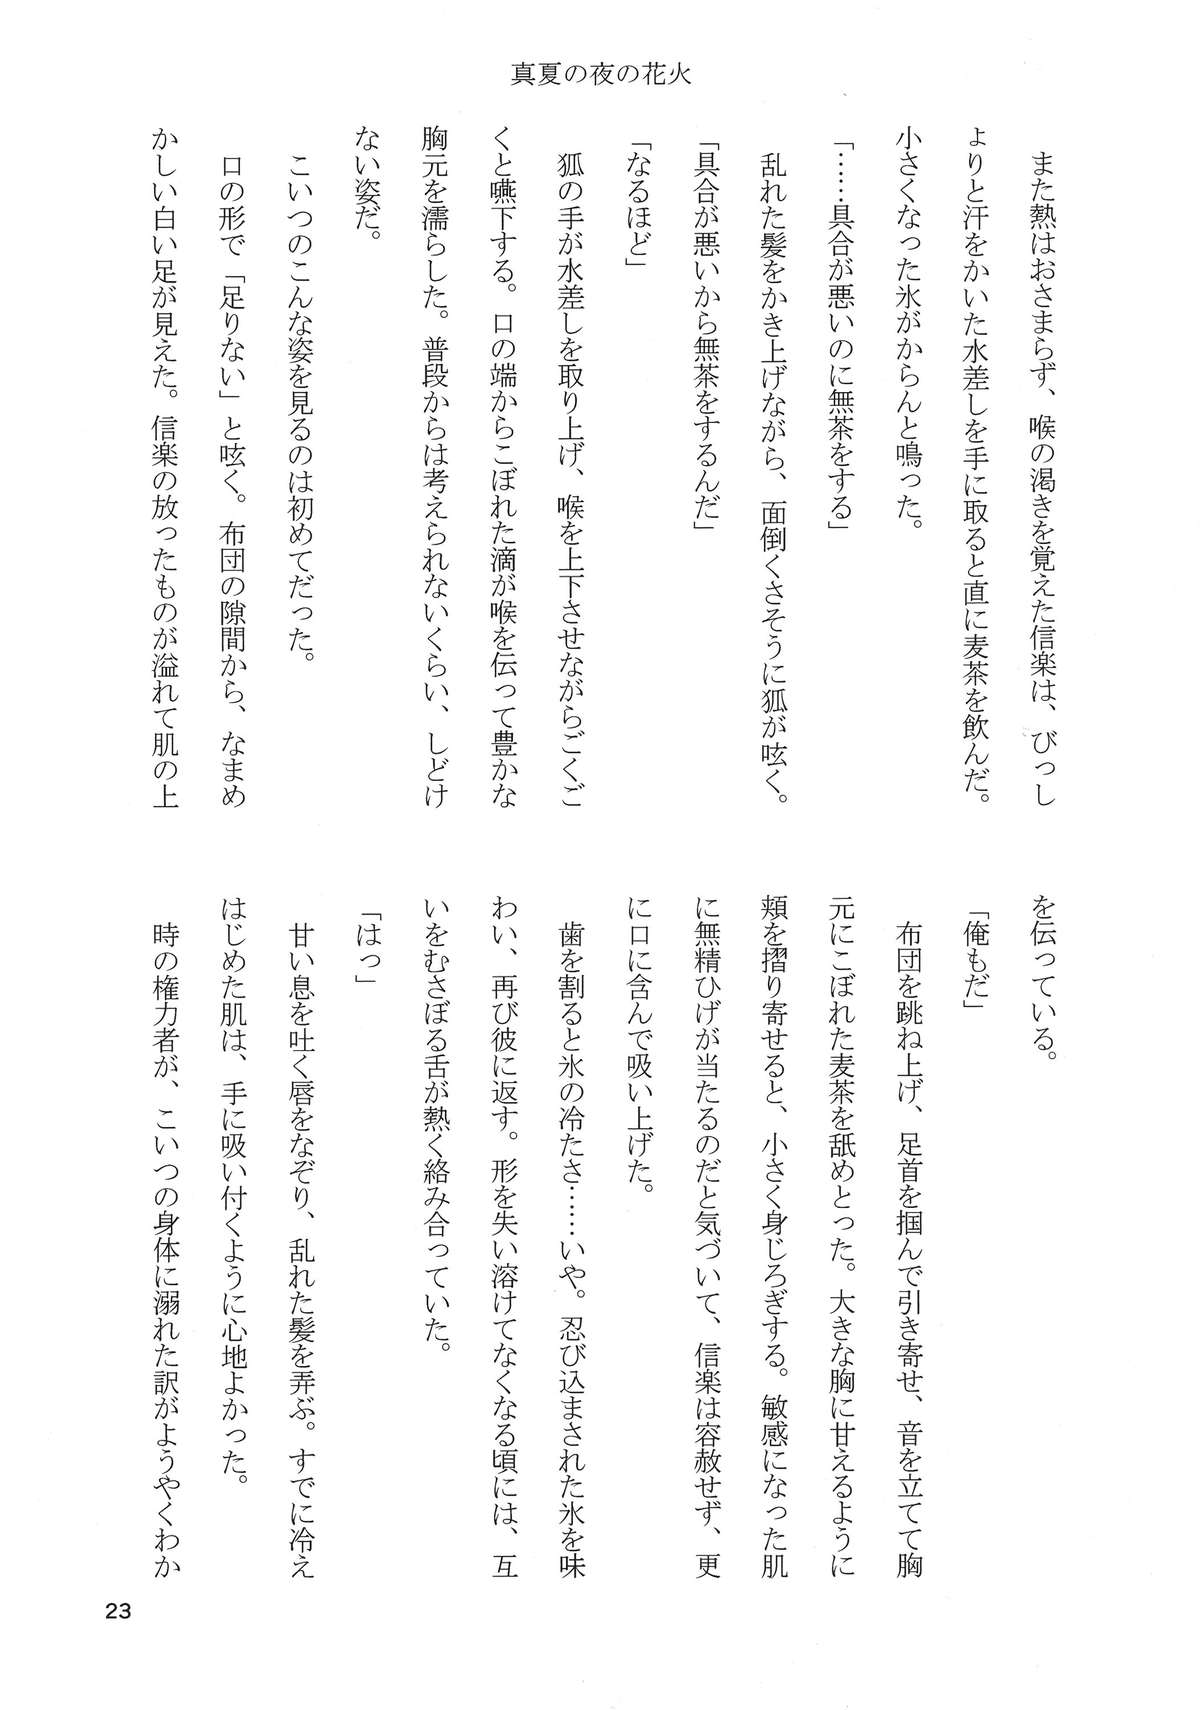 真夏の夜の花火
また熱はおさまらず、喉の渇きを覚えた信楽は、びっし
ょりと汗をかいた水差しを手に取ると直に麦茶を飲んだ。
小さくなった氷がからんと鳴った。
「……具合が悪いのに無茶をする」
乱れた髪をかき上げながら、面倒くさそうに狐が呟く。
「具合が悪いから無茶をするんだ」
「なるほど」
狐の手が水差しを取り上げ、喉を上下させながらごくご
くと嚥下する。口の端からこぼれた滴が喉を伝って豊かな
胸元を濡らした。普段からは考えられないくらい、しどけ
ない姿だ。
こいつのこんな姿を見るのは初めてだった。
口の形で「足りない」と呟く。布団の隙間から、なまめ
かしい白い足が見えた。信楽の放ったものが溢れて肌の上
を伝っている。
「俺もだ」
布団を跳ね上げ、足首を掴んで引き寄せ、音を立てて胸
元にこぼれた麦茶を舐めとった。大きな胸に甘えるように
頬を摺り寄せると、小さく身じろぎする。敏感になった肌
に無精ひげが当たるのだと気づいて、信楽は容赦せず、更
に口に含んで吸い上げた。
歯を割ると氷の冷たさ……いや。忍び込まされた氷を味
わい、再び彼に返す。形を失い溶けてなくなる頃には、互
いをむさぼる舌が熱く絡み合っていた。
「はっ」
甘い息を吐く唇をなぞり、乱れた髪を弄ぶ。すでに冷え
はじめた肌は、手に吸い付くように心地よかった。
時の権力者が、こいつの身体に溺れた訳がようやくわか
23